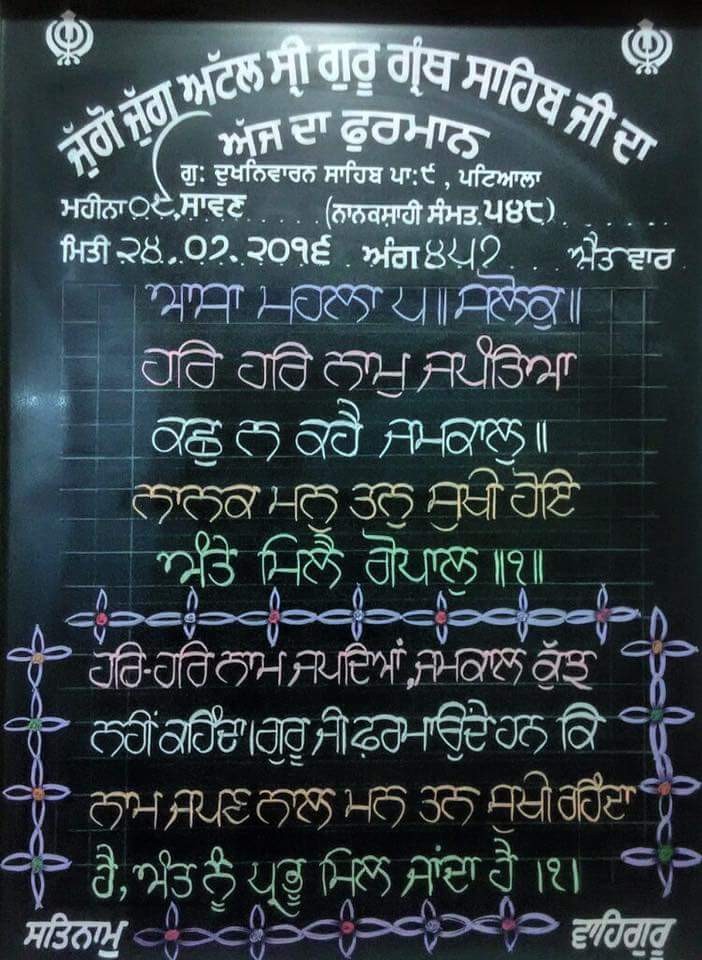 ਜੁੱਗੋ ਜੁੱਗ ਅਟੱਲ ਸ੍ਰੀ ਗੁਰੂ ਗ੍ਰੰਥ ਸਾਹਿਬ ਜੀ ਦਾ
ਅੱਜ ਦਾ ਫੁਰਮਾਨ
ਗੁ: ਦੁਖਨਿਵਾਰਨ ਸਾਹਿਬ ਪਾ:੯ , ਪਟਿਆਲਾ
ਮਹੀਨਾ ੦੯ ਸਾਵਣ (ਨਾਨਕਸ਼ਾਹੀ ਸੰਮਤ ੫੪੮)
ਮਿਤੀ ੨੪.੦੭.੨੦੧੬ ਅੰਗ ੪੫੭ ਐਤ ਵਾਰ
ਆਸਾ ਮਹਲਾ ੫॥ ਸਲੋਕੁ॥
ਹਰਿ ਹਰਿ ਨਾਮੁ ਜਪੰਤਿਆ
ਕਛੁ ਨ ਕਹੈ ਜਮਕਾਲੁ॥
ਨਾਨਕ ਮਨੁ ਤਨੁ ਸੁਖੀ ਹੋਇ
ਅੰਤੇ ਮਿਲੈ ਗੋਪਾਲੁ॥੧॥
ਹਰਿ-ਹਰਿ ਨਾਮ ਜਪਦਿਆਂ, ਜਮਕਾਲ ਕੁੱਝ
ਨਹੀਂ ਕਹਿੰਦਾ।ਗੁਰੂ ਜੀ ਫ਼ਰਮਾਉਂਦੇ ਹਨ ਕਿ
ਨਾਮ ਜਪਣ ਨਾਲ ਮਨ ਤਨ ਸੁਖੀ ਰਹਿੰਦਾ
ਹੈ, ਅੰਤ ਨੂੰ ਪ੍ਰਭੂ ਮਿਲ ਜਾਂਦਾ ਹੈ।੧।
ਸਤਿਨਾਮੁ ਵਾਹਿਗੁਰੂ